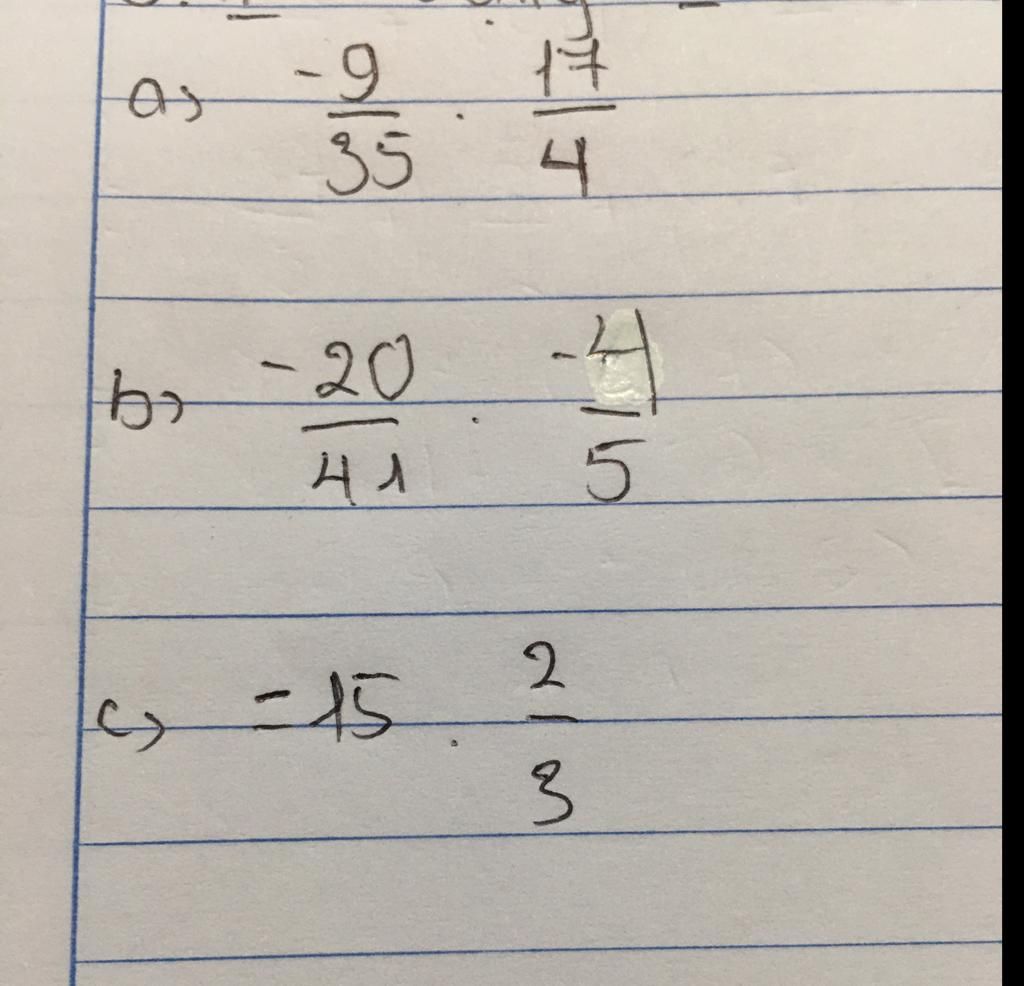 a) -9/35 . 17/4
b) -20/41 . -4/5
c) = 15 . 2/3